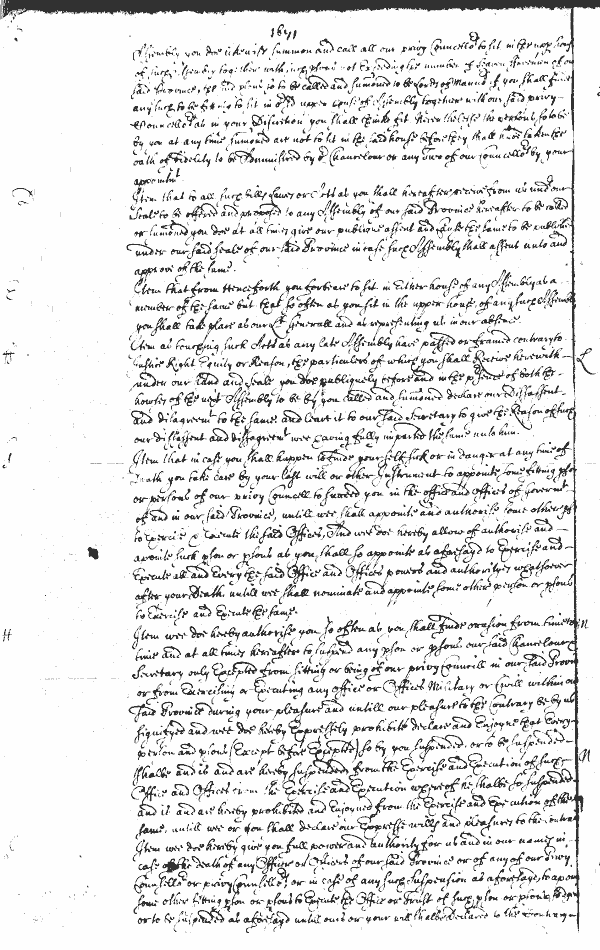 1671
Assembly you doe likewise summon and call all our privy Councello.rs to sitt in the upp house
of such Assembly together with such psons not Exceeding the number of Seaven Gentlemen of our
said Province, the said psons so to be called and sumoned to be Lords of Mannors if you shall finde
any such to be fitting to sitt in o.r said upper house of Assembly together with our said privy
Councello.rs as in your Discretion you shall thinke fitt Nevertheless the persons so to be
by you at any time sumoned are not to sitt in the said house before they shall have taken the
oath of fidelity to be Administred by o.r Chancelour or any two of our Councello.rs by your
appointm.t
Item that to all such bills Lawes or Acts as you shall hereafter receive from us und our
Seale to be offered and proposed to any Assembly of our said Province hereafter to be called
or sumoned you doe at all times give our publique assent and cause the same to be publisht
under our said seale of our said Province in case such Assembly shall assent unto and
approve of the same.
Item that from Henceforth you forbeare to sitt in Either house of any Assembly as a
member of the same but that so often as you sitt in the upper house of any such Assembly
you shall take place as our L.t Generall and as representing us in our absence.
Item as touching such Acts as any late Assembly have passed or framed contrary to
Justice Right Equity or Reason, the particulers of which you shall Receive herewith
under our hand and seale you doe publiquely before and in the psence of both the
houses of the next Assembly to be by you called and sumoned declare our dissassent
and disagreem.t to the same and leave it to our said Secretary to give the Reason of such
our dissassent and dissagreem.t wee having fully imparted the same unto him.
Item that in case you shall happen to finde your self sick or in danger at any time of
Death you take care by your last will or other Instrument to appointe some fitting pson
or persons of our privy Councell to succeed you in the office and offices of governm.t
of and in our said Province, untill wee shall appointe and authorise some other ps
to Exercise & Execute the said Offices, And wee doe hereby allow of authorise and
apointe such pson or psons as you shall so appointe as aforesayd to Exercise and
Execute all and Every the said Office and Offices powers and authorityes whatsoever
after your Death untill wee shall nominate and appointe some other person or psons
to Exercise and Execute the same.
Item wee doe hereby authorise you so often as you shall finde occasion from time to
time and at all times hereafter to suspend any pson or psons our said Chancelour &
Secretary only Excepted from sitting or being of our privy Councill in our said Province
or from Exercising or Executing any office or Offices Military or Civill within our
said Province during your pleasure and untill our pleasure to the contrary be by us
signifyed and wee doe hereby Expressely prohibite declare and Enjoyne that Every
person and psons (Except before Excepted) so by you suspended, or to be suspended
shalbe and is and are hereby suspended from the Exercise and Execution of such
Office and Offices from the Exercise and Execution whereof he shalbe so suspended
and is and are hereby prohibited and Enjoyned from the Exercise and Execution of the
same, untill wee or you shall declare our Expresse wills and pleasures to the contrary
Item wee doe hereby give you full power and authority for us and in our names in
case of the death of any Officer or Officers of our said Province or of any of our Privy
Councello.r or privy Councello.rs or in case of any such suspension as aforesaye, to apoin
some other fitting pson or psons to Execute the Office or trust of such pson or psons so dyin
or to be suspended as aforesayd untill ours or your will shalbe declared to the Contrary